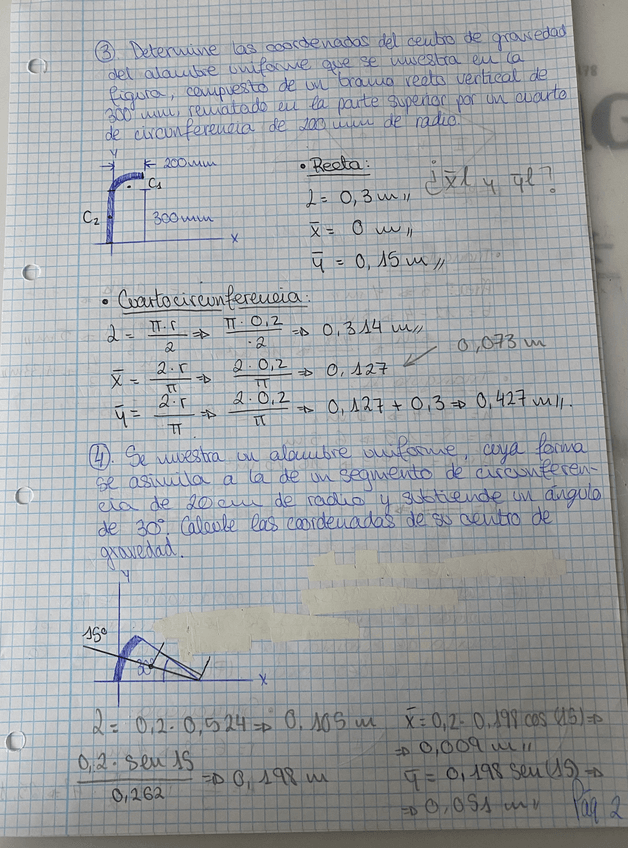 ③ Determine las coordenadas del centro de gravedad
del alambre uniforme que se muestra en la
figura, compuesto de un tramo recto vertical de
300 mm, rematado en la parte superior por un cuarto
de circunferencia de 200 mm de radio.
y
200 mm
C1
C2
300 mm
x
• Recta: ¿x̄l y ȳl?
λ = 0,3 m,,
x̄ = 0 m,,
ȳ = 0,15 m,,
• Cuarto circunferencia:
λ = π·r/2 ⇒ π·0,2/2 ⇒ 0,314 m,,
0,073 m
x̄ = 2·r/π ⇒ 2·0,2/π ⇒ 0,127
ȳ = 2·r/π ⇒ 2·0,2/π ⇒ 0,127 + 0,3 ⇒ 0,427 m,,.
④. Se muestra un alambre uniforme, cuya forma
se asimila a la de un segmento de circunferen-
cia de 20 cm de radio y subtiende un ángulo
de 30º. Calcule las coordenadas de su centro de
gravedad.
y
15º
30º
x
λ = 0,2 · 0,524 ⇒ 0,105 m
x̄ = 0,2 - 0,198 cos (15) ⇒
⇒ 0,009 m,,
0,2 · sen 15/0,262 ⇒ 0,198 m
ȳ = 0,198 sen (15) ⇒
⇒ 0,051 m,,
Pág 2